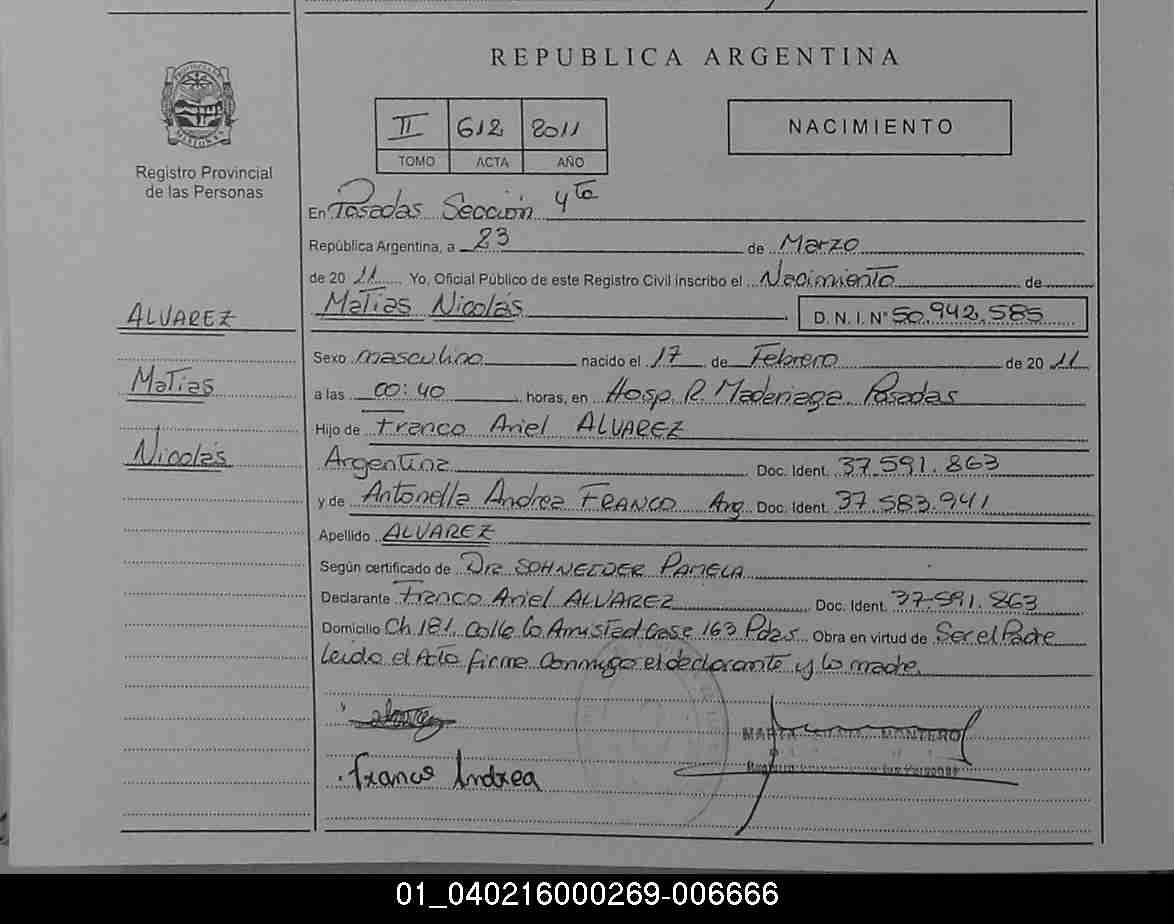 REPUBLICA ARGENTINA
II 612 2011
TOMO ACTA AÑO
NACIMIENTO
PROVINCIA DE
MISIONES
Registro Provincial
de las Personas
ALVAREZ
Matias
Nicolás
En Posadas Sección 4ta
República Argentina, a 23 de Marzo
de 20 11 Yo, Oficial Público de este Registro Civil inscribo el Nacimiento de
Matias Nicolás D. N. I. N° 50.942.585
Sexo masculino nacido el 17 de Febrero de 20 11
a las 00:40 horas, en Hosp. R. Madariaga Posadas
Hijo de Franco Ariel ALVAREZ
Argentina Doc. Ident. 37.591.863
y de Antonella Andrea FRANCO Arg Doc. Ident. 37.583.941
Apellido ALVAREZ
Según certificado de Dra SCHNEIDER PAMELA
Declarante Franco Ariel ALVAREZ Doc. Ident. 37.591.863
Domicilio Ch 181 Calle la Amistad Casa 163 Pdas Obra en virtud de Ser el Padre
leida el Acta firma conmigo el declarante y la madre.
Franco Andrea
MONTERO
01_040216000269-006666